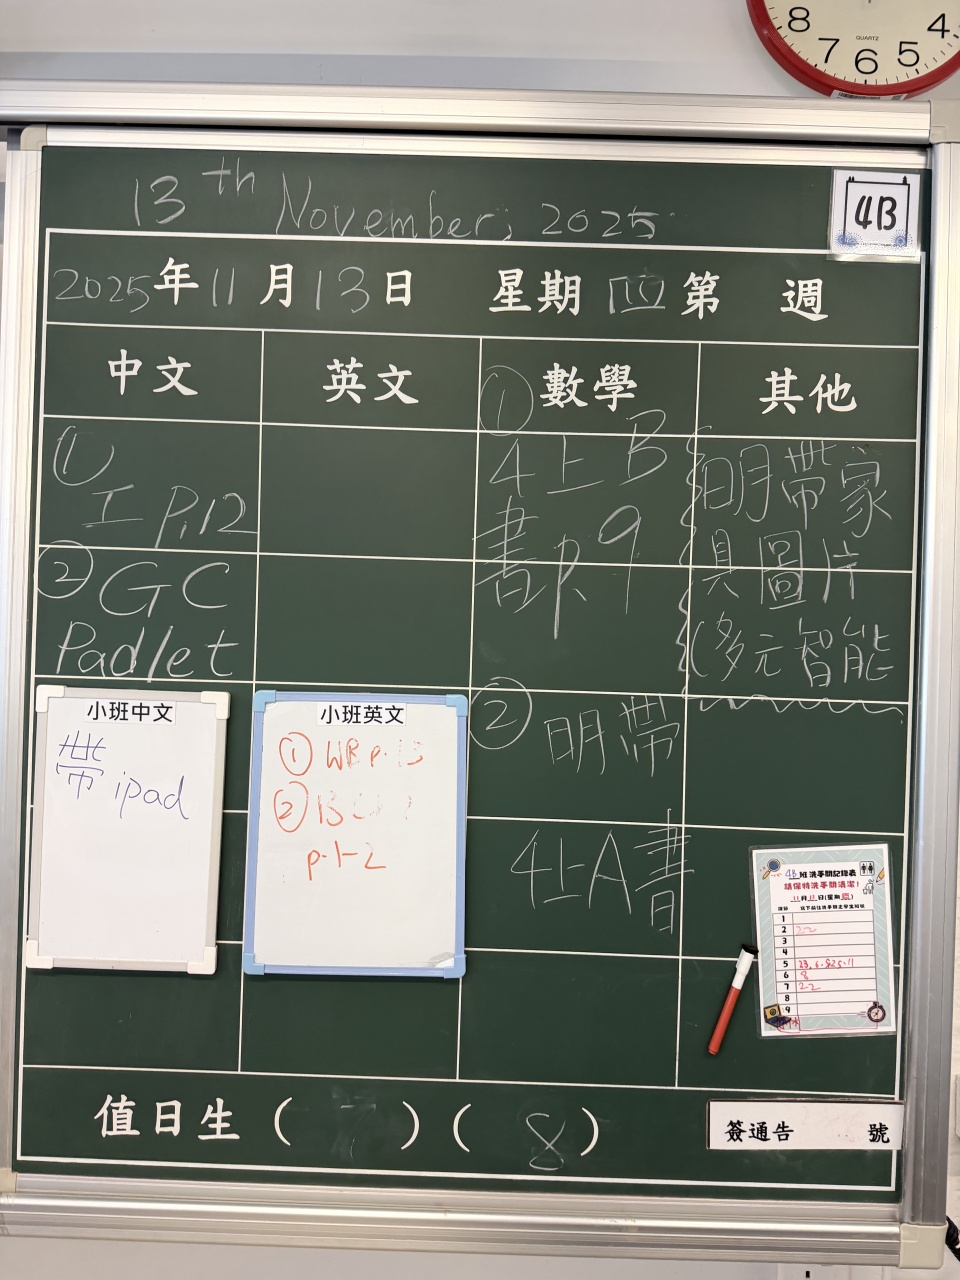 8 7 6 5 4
QUARTZ
13th November, 2025
4B
2025年11月13日 星期四 第 週
中文 英文 數學 其他
①
工 P.12
② GC
Padlet
①
4上B
書p.9
②
明帶
4上A書
明帶家
具圖片
(多元智能
小班中文
帶 ipad
小班英文
① WB p.
②
p.1-2
4B班洗手間記錄表
請保持洗手間清潔!
1
2 22
3
4
5
6 8
7 22
8
9
值日生( 7 )( 8 )
簽通告 號